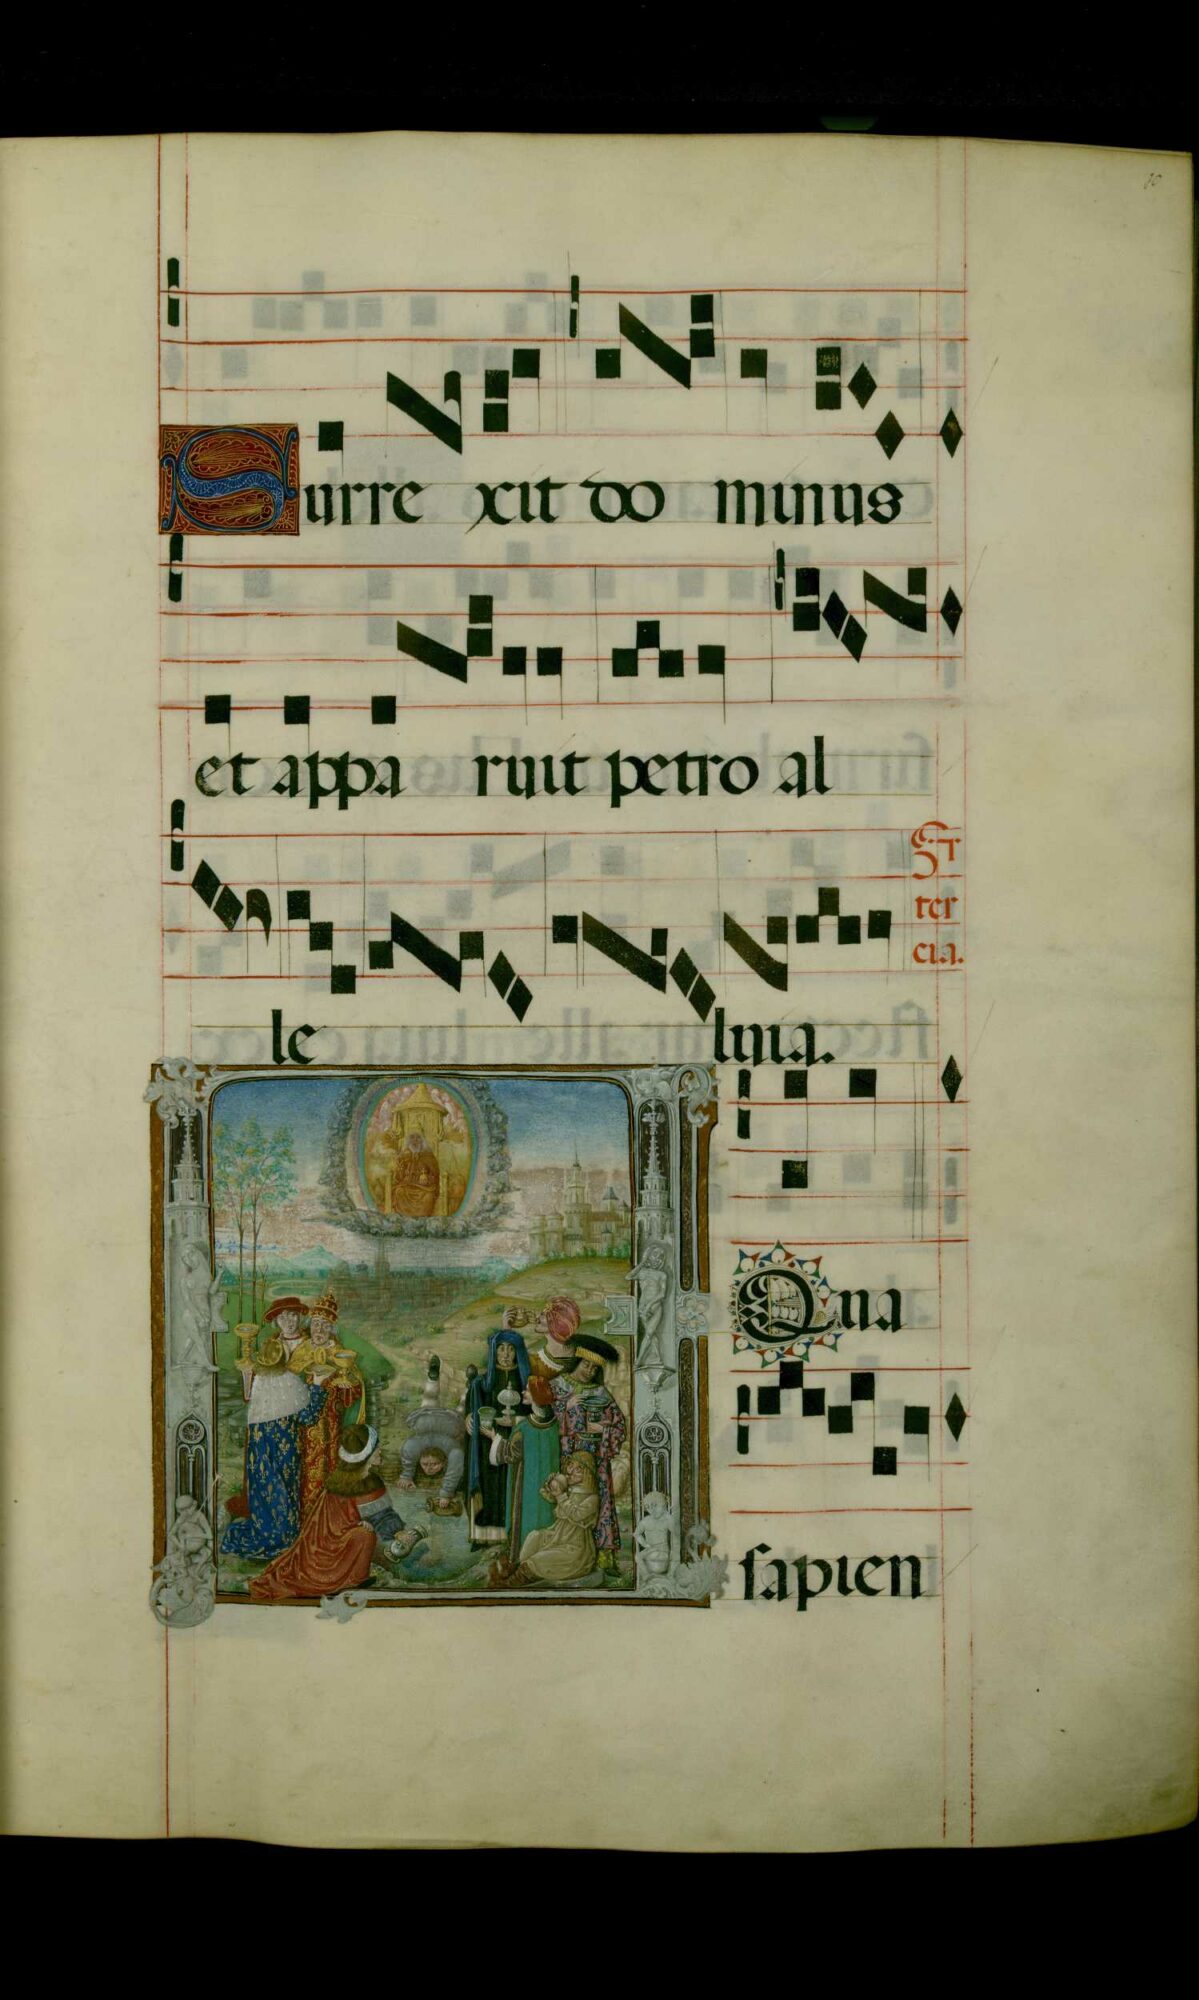 Surre xit do minus
et appa ruit petro al
le luia.
Fr
ter
cia.
Aqua
sapien